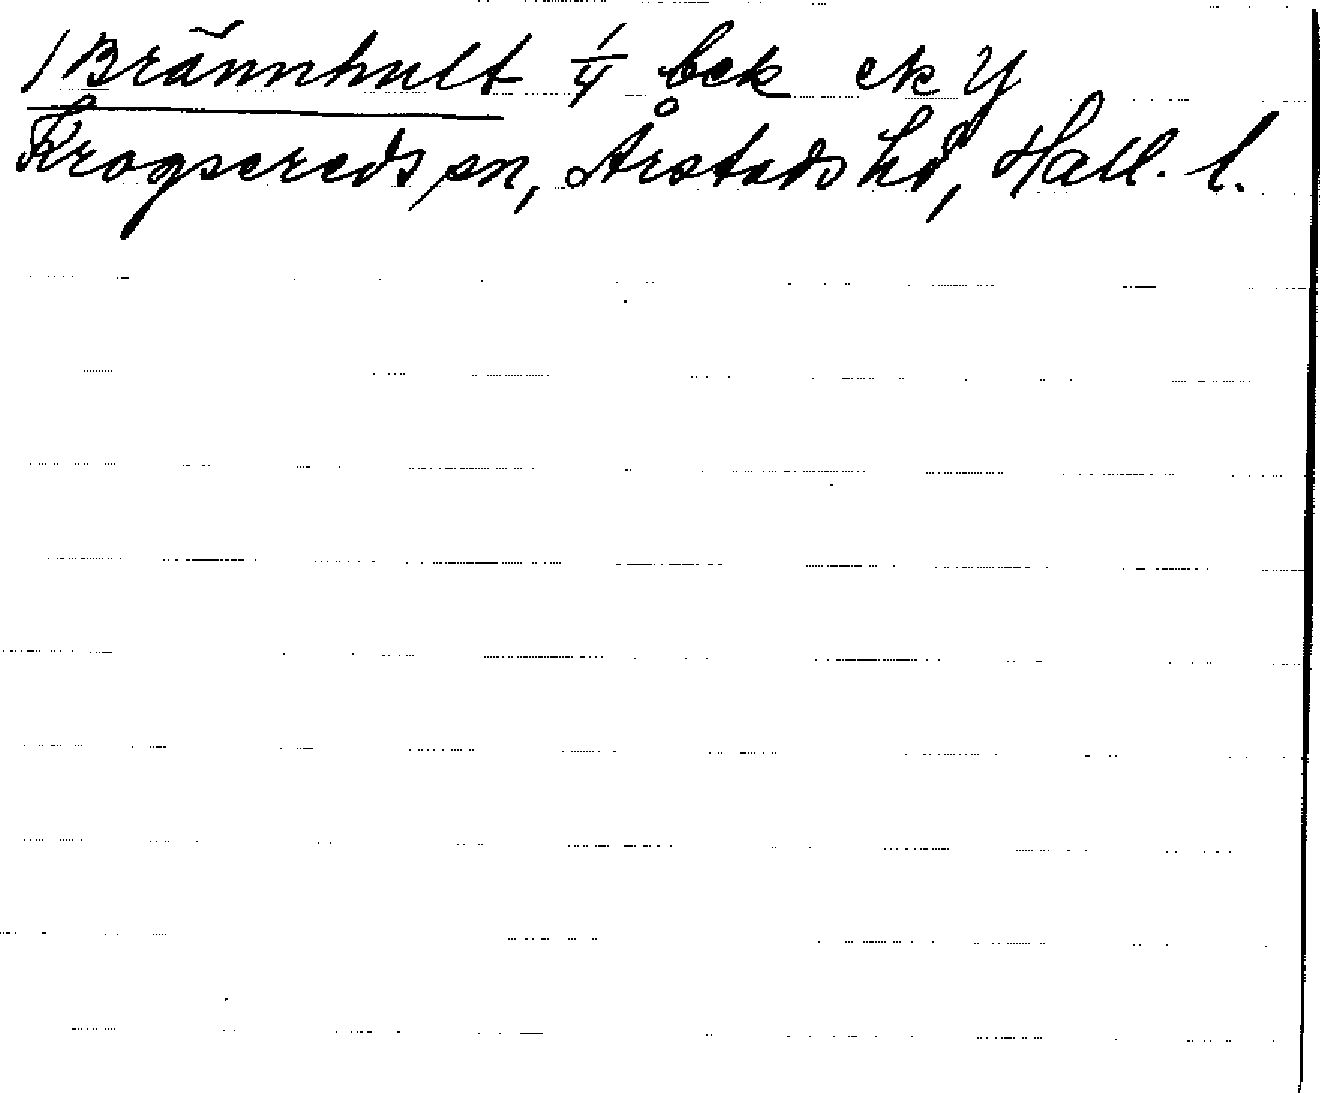 /Brännhult 1/4 bek ek Y
Krogsereds sn, Årstads hd, Hall. l.